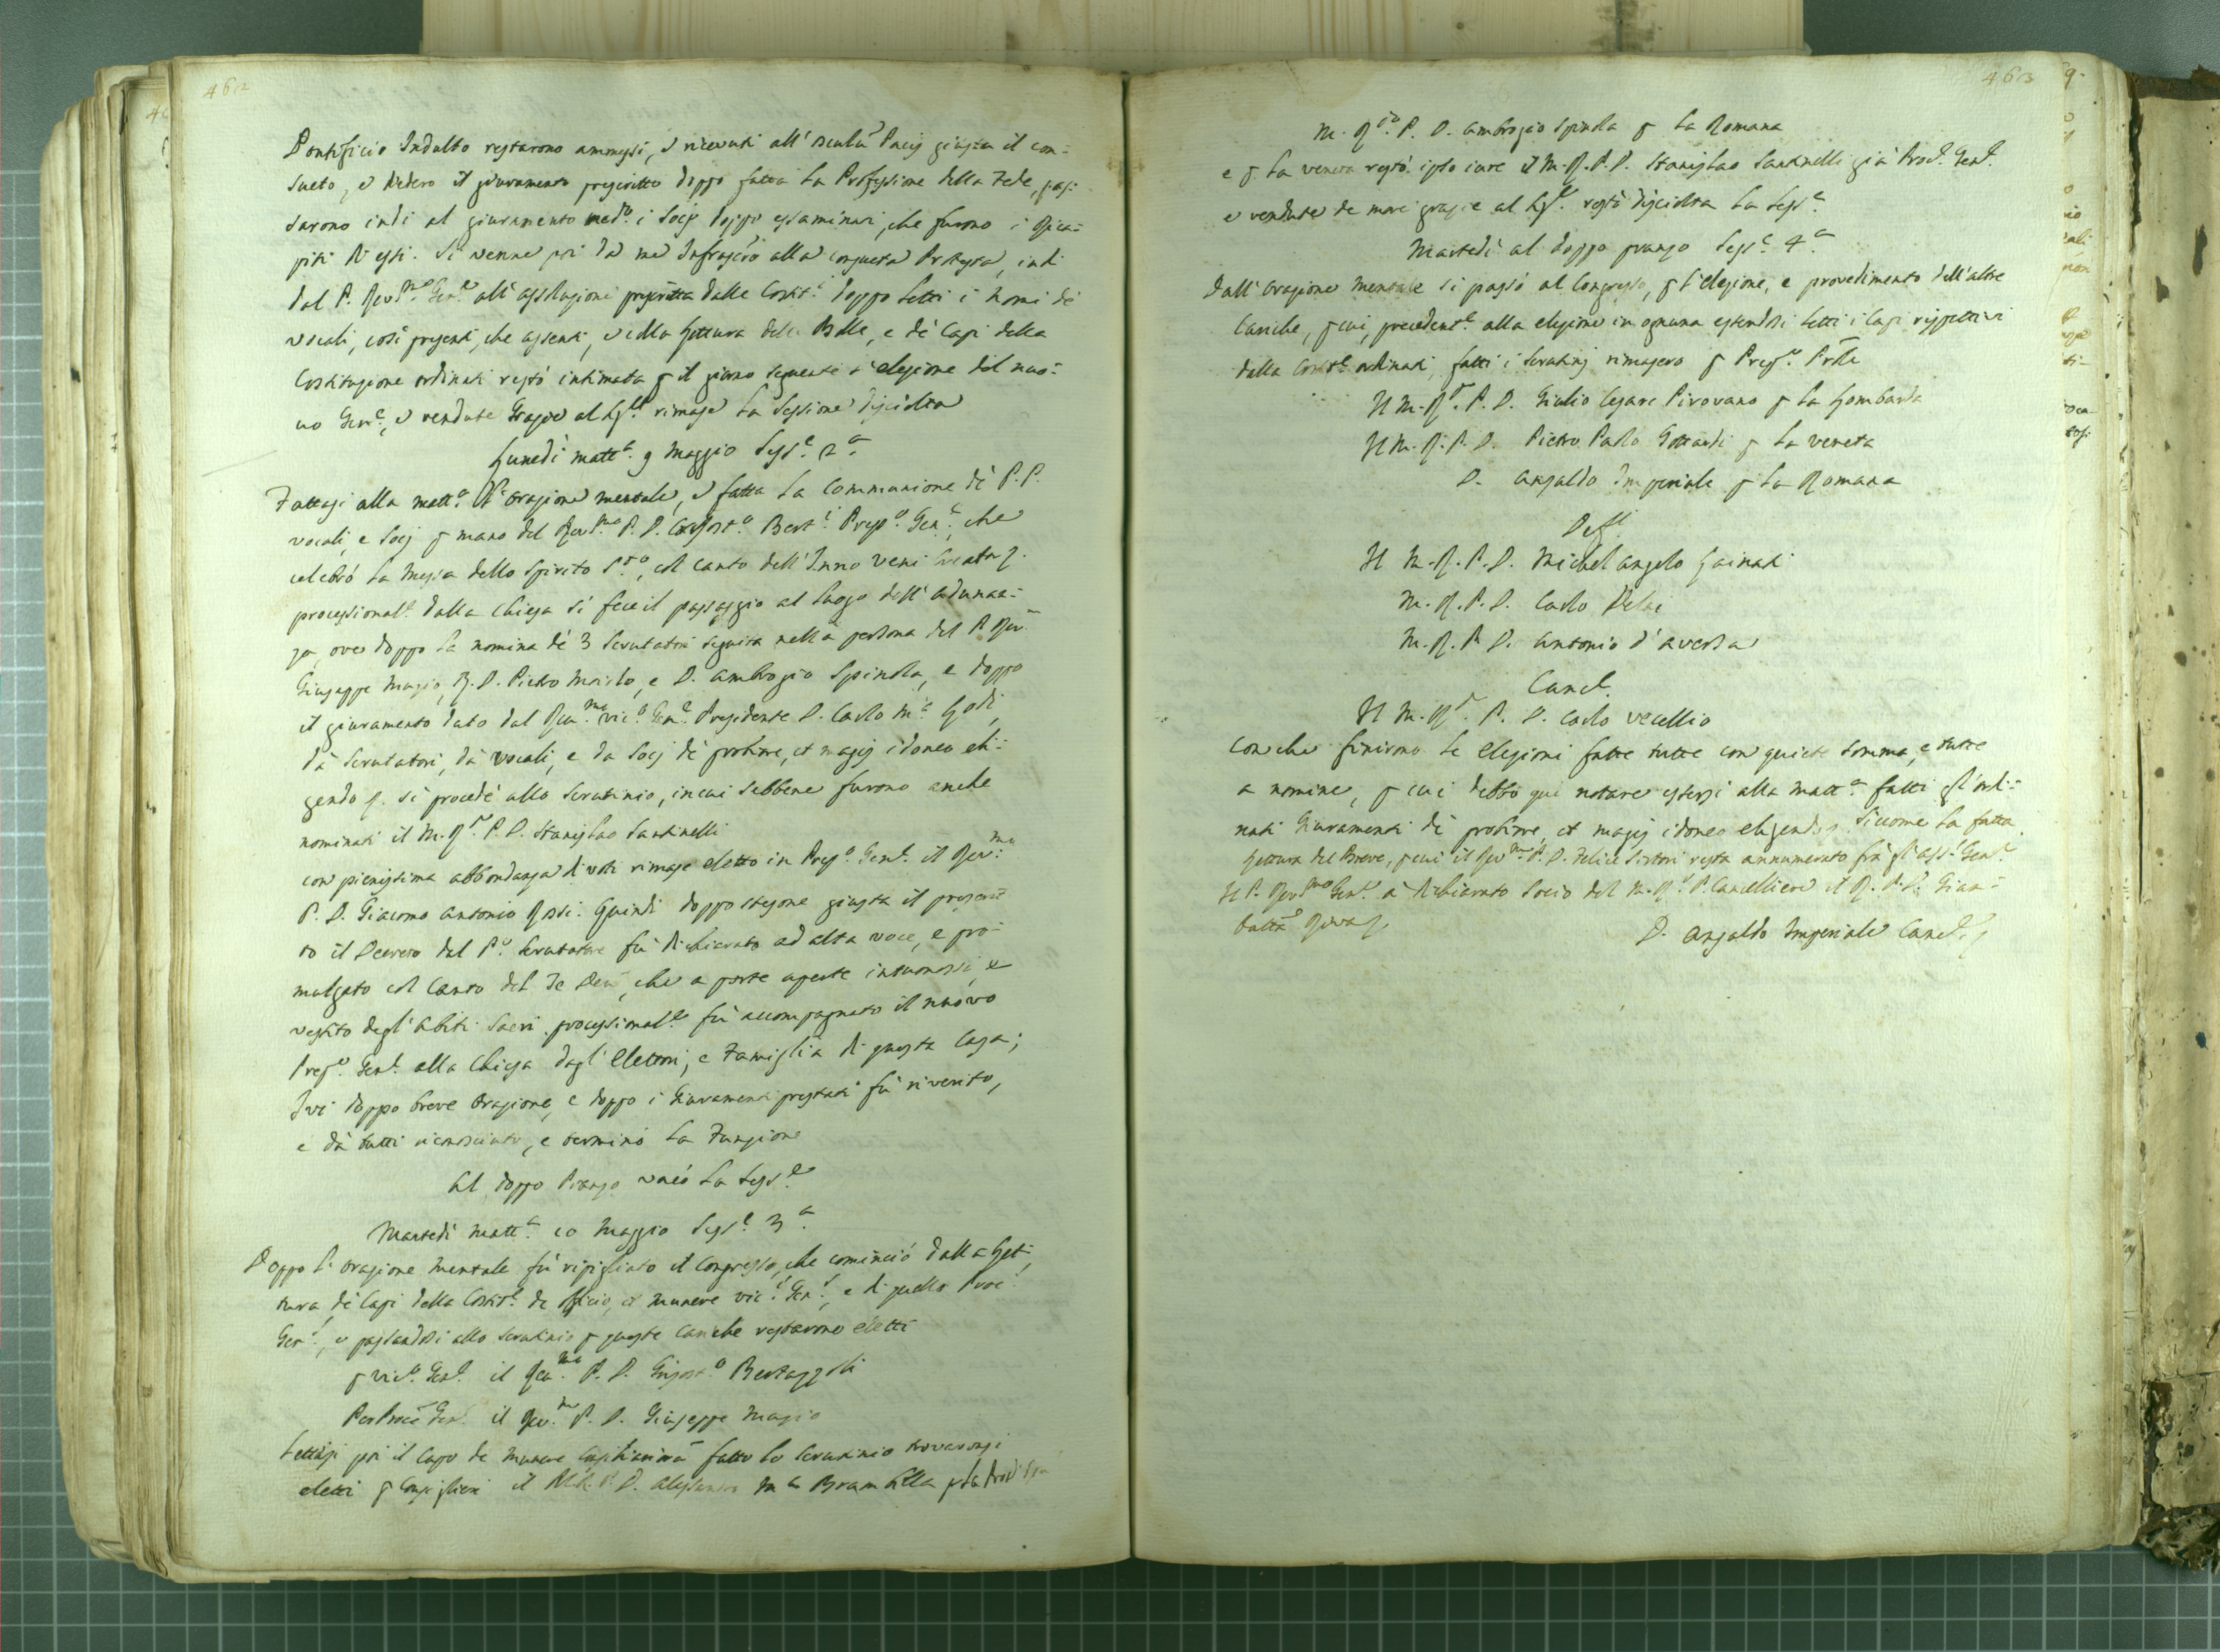 462
Pontificio Indulto restarono ammessi, e ricevuti all' osculũ Pacis giusta il con-
sueto, e diedero il giuramento prescritto doppo fatta la Professione della Fede, pas-
sarono indi al giuramento med.o i Socij doppo essaminati, che furono i
di essi. Si venne poi da me Infrascr̃o alla consueta Protesta, indi
dal P. Rev.mo Gen.e all' assoluzione prescritta dalle Costit.i doppo letti i nomi de
vocali, così presenti, che assenti, e colla lettura delle Bolle, e de Capi della
Costituzione ordinati restò intimata p il giorno seguente l'elezione del nuo-
vo Gen.e, e rendute Grazie al Sig.e rimase la Sessione disciolta
Lunedì matt.a 9 Maggio Sess.e 2.a
Fattasi alla matt.a l'orazione mentale, e fatta la Communione de P.P.
vocali, e Socij p mano del Rev.mo P. D. Bert.i Prep.o Gen.e, che
celebrò la Messa dello Spirito S.to, col canto dell' Inno Veni Creator
processional.e dalla Chiesa si fece il passaggio al luogo dell' Adunan-
za, ove doppo la nomina de 3 Scrutatori seguita nella persona del P. Rev.
Giuseppe Magio, P. D. Pietro, e D. Ambrogio Spinola, e doppo
il giuramento dato dal Rev.mo Vic.o Gen.e Presidente D. Carlo M.a Lodi,
dà Scrutatori, dà Vocali, e da Socij de probiore, et magis idoneo eli-
gendo si procedè allo Scrutinio, in cui sebbene furono anche
nominati il M. R. P. D. Stanislao Santinelli
con pienissima abbondanza di voti rimase eletto in Prep.o Gen.e il Rev.mo
P. D. Giacomo Antonio Rossi. Quindi doppo stesone giusta il prescrit-
to il Decreto dal P.o Scrutatore fù dichiarato ad alta voce, e pro-
mulgato col canto del Te Deũ, che a porte aperte intuonossi, e
vestito degl' Abiti Sacri processional.e fù accompagnato il nuovo
Prep.o Gen.e alla Chiesa dagl' Elettori, e Famiglia di questa Casa;
Ivi doppo breve Orazione, e doppo i Giuramenti prestati fù riverito,
e dà tutti riconosciuto, e terminò la Funzione
Al doppo Pranzo vacò la Sess.e
Martedì Matt.a 10 Maggio Sess.e 3.a
Doppo l'orazione mentale fù ripigliato il Congresso, che cominciò dalla Let-
tura de Capi della Costit.e de Officio, et munere Vic.i Gen.s, e di quello Proc.
Gen.s, e passandosi allo scrutinio p queste cariche restarono eletti
p Vic.o Gen.e il Rev.mo P. D. Bertazzoli
Per Proc. Gen. il Rev.mo P. D. Giuseppe Magio
Lettosi poi il Capo de Munere Consiliariorũ fatto lo scrutinio trovaronsi
eletti p Consiglieri il M. R. P. D. Alessandro M.a Brambilla p la
463
M. R.do P. D. Ambrogio Spinola p la Romana
e p la veneta restò ipso iure il M. R. P. D. Stanislao Santinelli già Proc. Gen.
e rendute de more grazie al Sig.e restò disciolta la Sess.e
Martedì al doppo pranzo Sess.e 4.a
Dall' orazione mentale si passò al Congresso, p l'elezione, e provedimento dell' altre
Cariche, p cui, precedent.e alla elezione in ognuna essendosi letti i Capi rispettivi
dalla Costit.e ordinati, fatti i scrutinj rimasero p Prep.o Pr̃le
Il M. R. P. D. Giulio Cesare Pirovano p la Lombarda
Il M. R. P. D. Pietro Paolo Gottardi p la veneta
D. Ansaldo Imperiale p la Romana
Deff.i
Il M. R. P. D. Michel Angelo Gainati
M. R. P. D. Carlo
M. R. P. D. Antonio d'Aversa
Canc.
Il M. R. P. D. Carlo Vecellio
con che finirono le elezioni fatte tutte con quiete somma, e tutte
a nomine, p cui debbo qui notare essersi alla matt.a fatti gl'ordi-
nati Giuramenti de probiore, et magis idoneo eligendo, siccome la fatta
Lettura del Breve, p cui il Rev.mo P. D. Felice Sertori resta annumerato frà gl' ass.i Gen.
Il P. Rev.mo Gen.e à dichiarato Socio del M. R. P. Cancelliere il R. P. D. Giam-
batta Riva
D. Ansaldo Imperiale Canc.